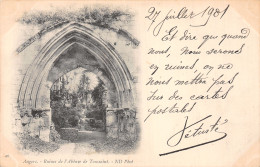 27 juillet 1901
Et dire que quand
nous, nous serons
en ruines, on ne
nous mettra pas
sur des cartes
postales
Vétusté
Angers. - Ruines de l'Abbaye de Toussaint. - ND Phot